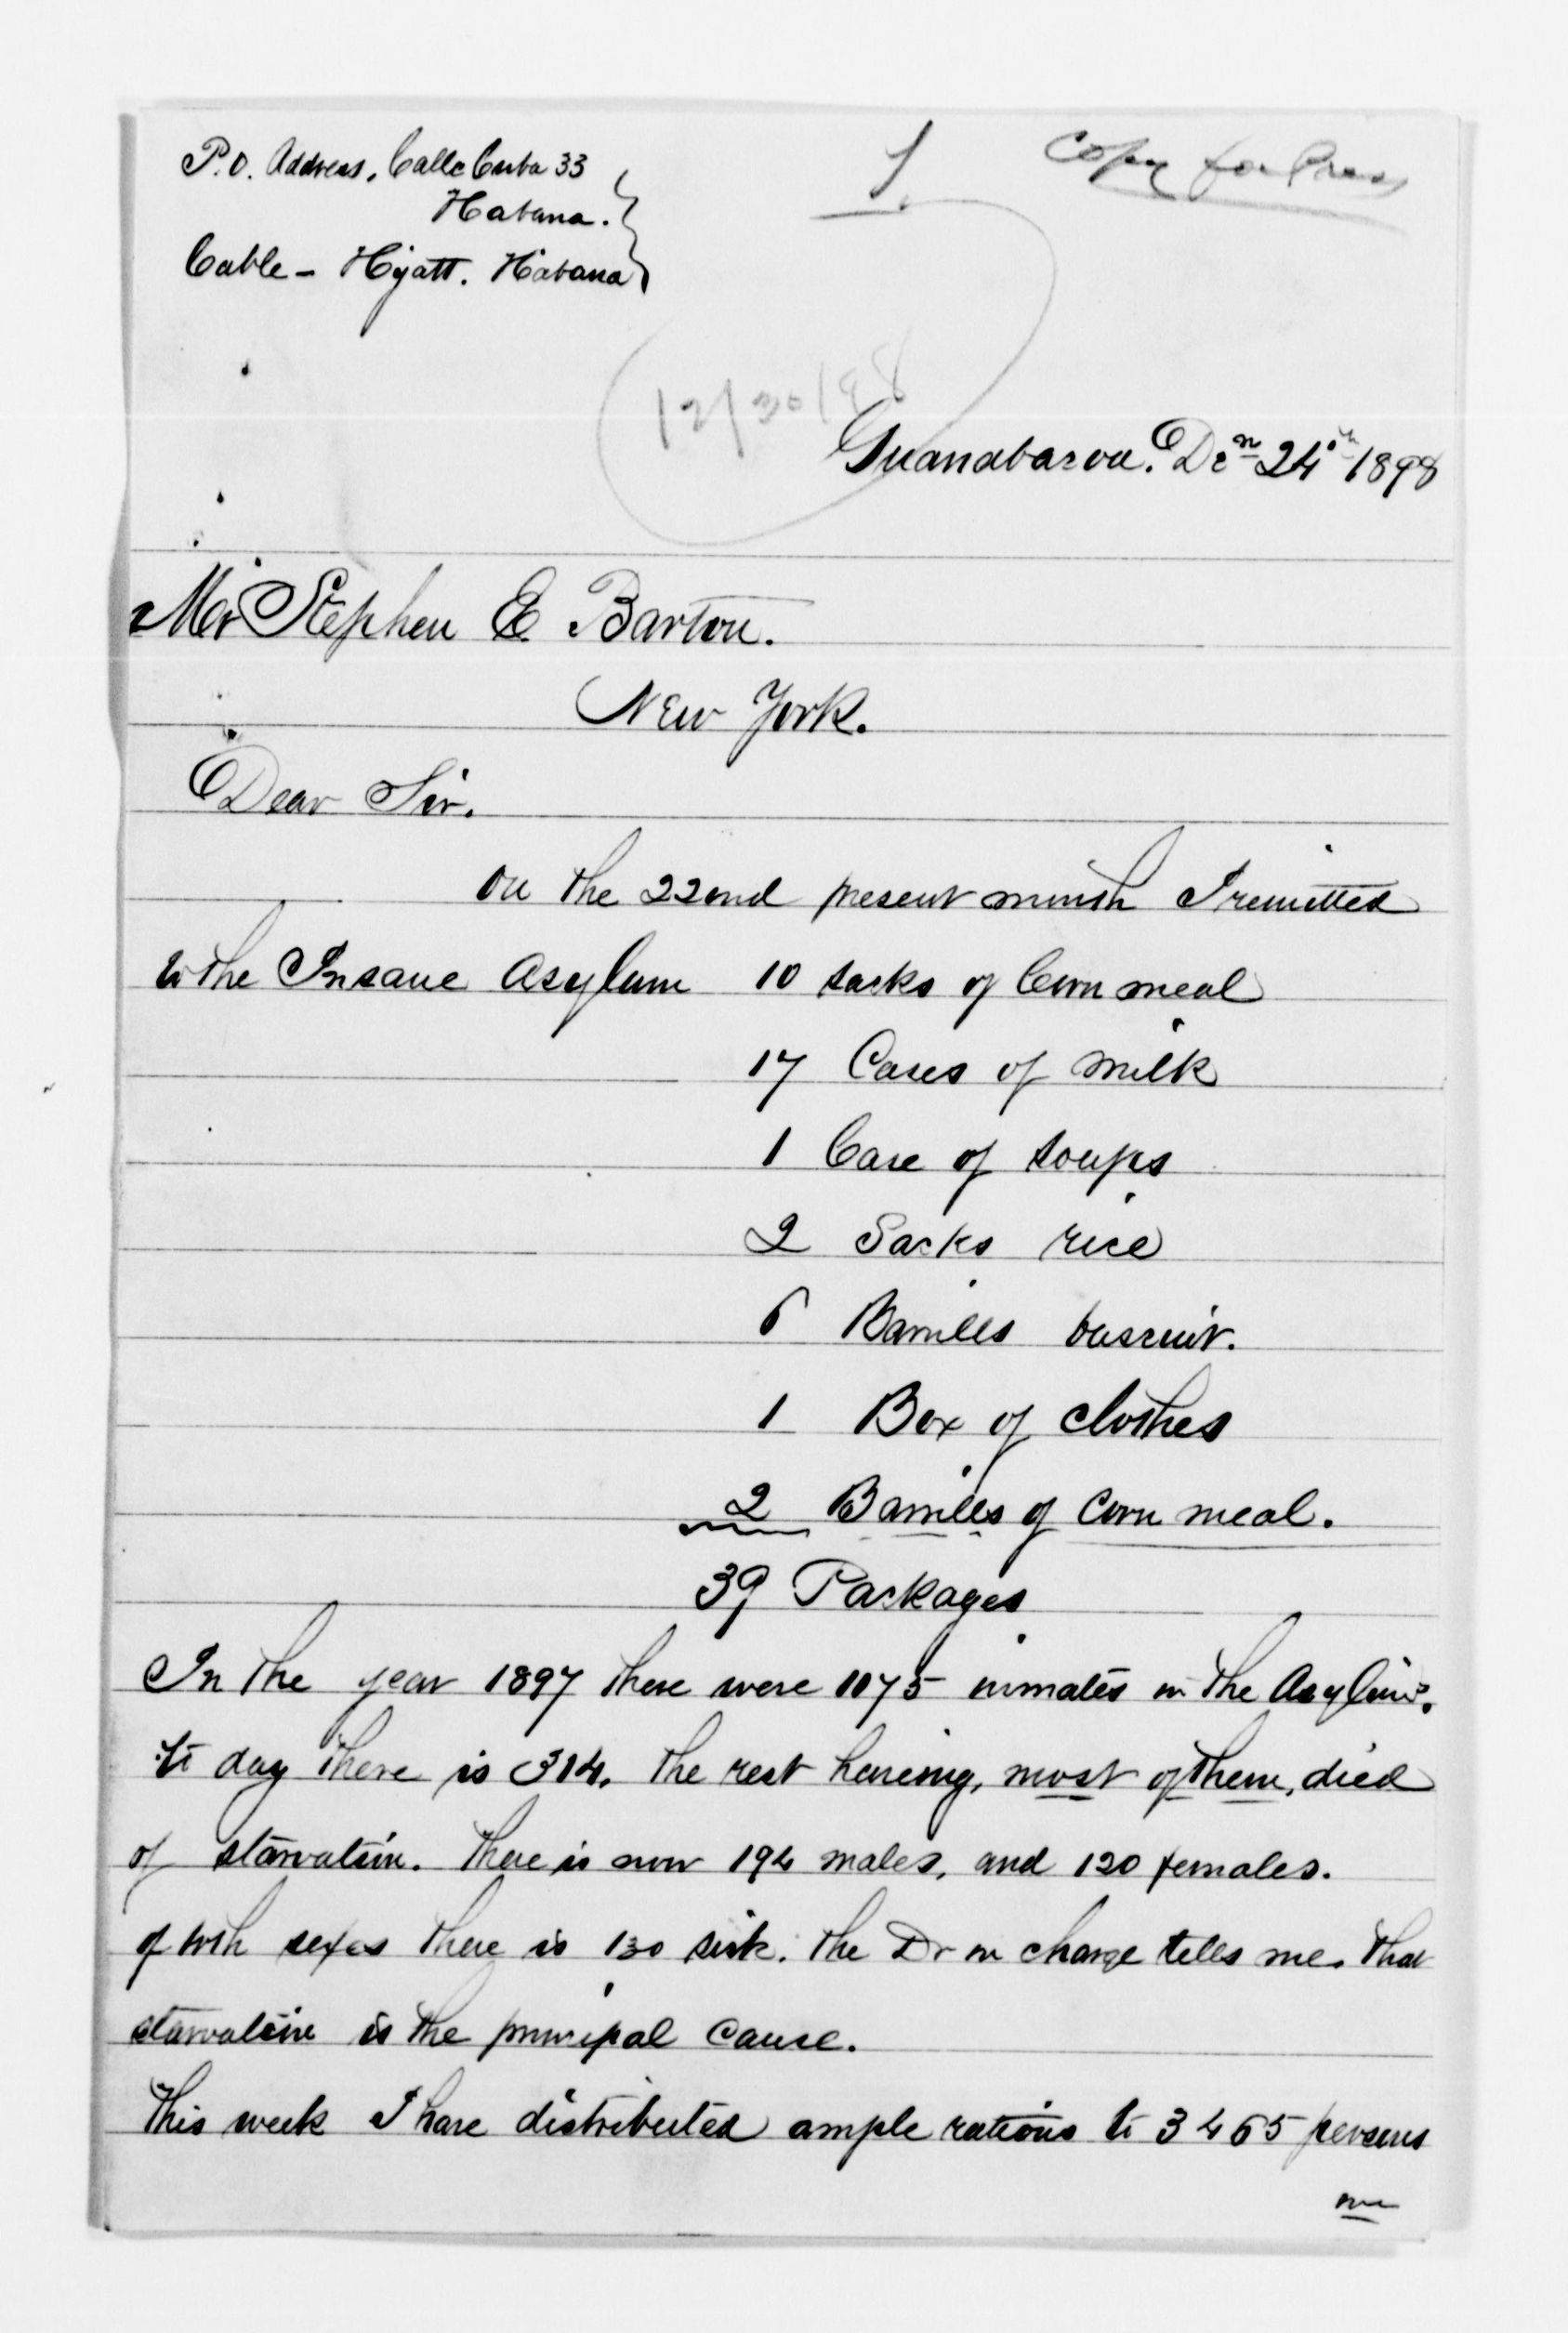 P.O. Address, Calle Cuba 33
Habana.
Cable - Hyatt. Habana
1
Copy for Press
12/30/98
Guanabacoa. Dcn 24th 1898
Mr Stephen E Barton.
New York.
Dear Sir.
On the 22ond present month I remitted
to the Insane Asylum 10 sacks of Corn meal
17 Cases of milk
1 Case of soups
2 Sacks rice
6 Barrills buscuit.
1 Box of clothes
2 Barrills of Corn meal.
39 Packages
In the year 1897 there were 1075 inmates in the Asylum.
to day there is 314. the rest haveing, most of them, died
of starvation. there is now 194 males, and 120 females.
of both sexes there is 130 sick. the Dr in charge tells me. that
starvation is the principal cause.
This week I have distributed ample rations to 3465 persons